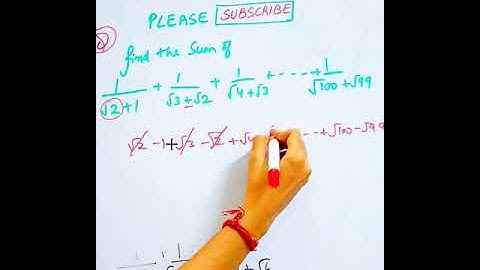 PLEASE SUBSCRIBE
find the Sum of
1/(√2+1) + 1/(√3+√2) + 1/(√4+√3) + ---- + 1/(√100+√99)
√2 -1 + √3 -√2 + √4 --+ √100 - √99